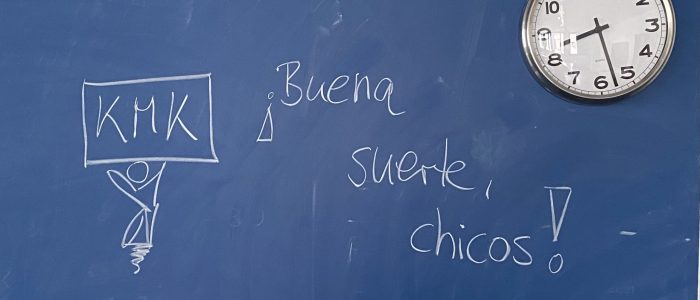 KMK
¡Buena
suerte,
chicos!
10
2
3
4
5
6
7
8